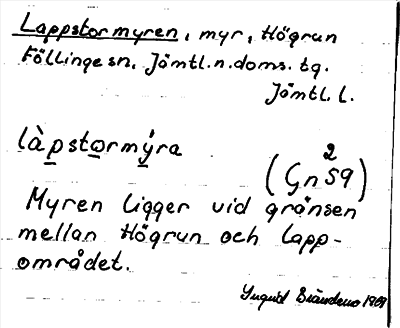 Lappstormyren, myr, Högrun
Föllinge sn. Jämtl. n. doms. tg.
Jämtl. l.
làpstormýra
2
(Gn 59)
Myren ligger vid gränsen
mellan Högrun och lapp-
området.
Ingrid 1969